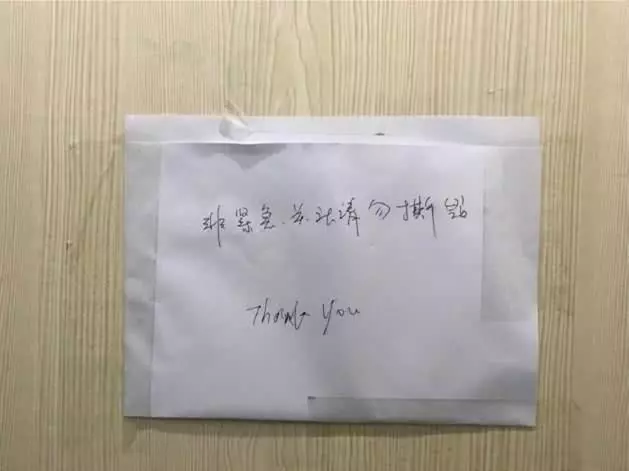 非紧急关头请勿撕毁
Thank you